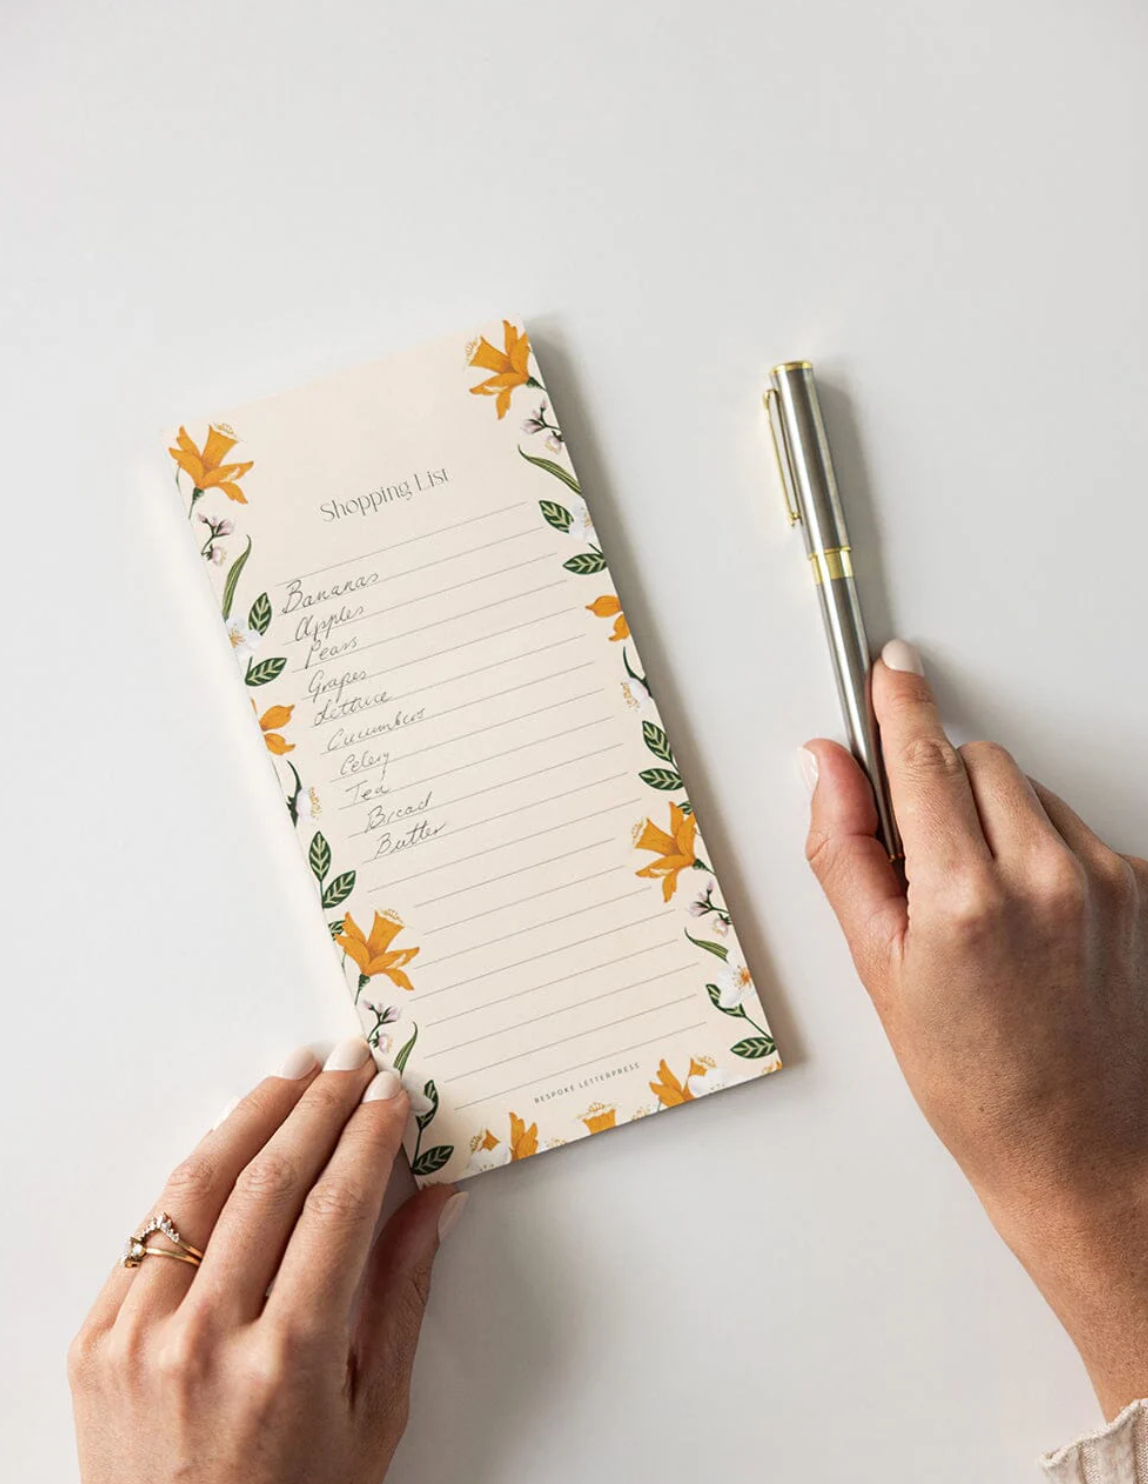 Shopping List
Bananas
Apples
Pears
Grapes
Lettuce
Cucumbers
Celery
Tea
Bread
Butter
BESPOKE LETTERPRESS